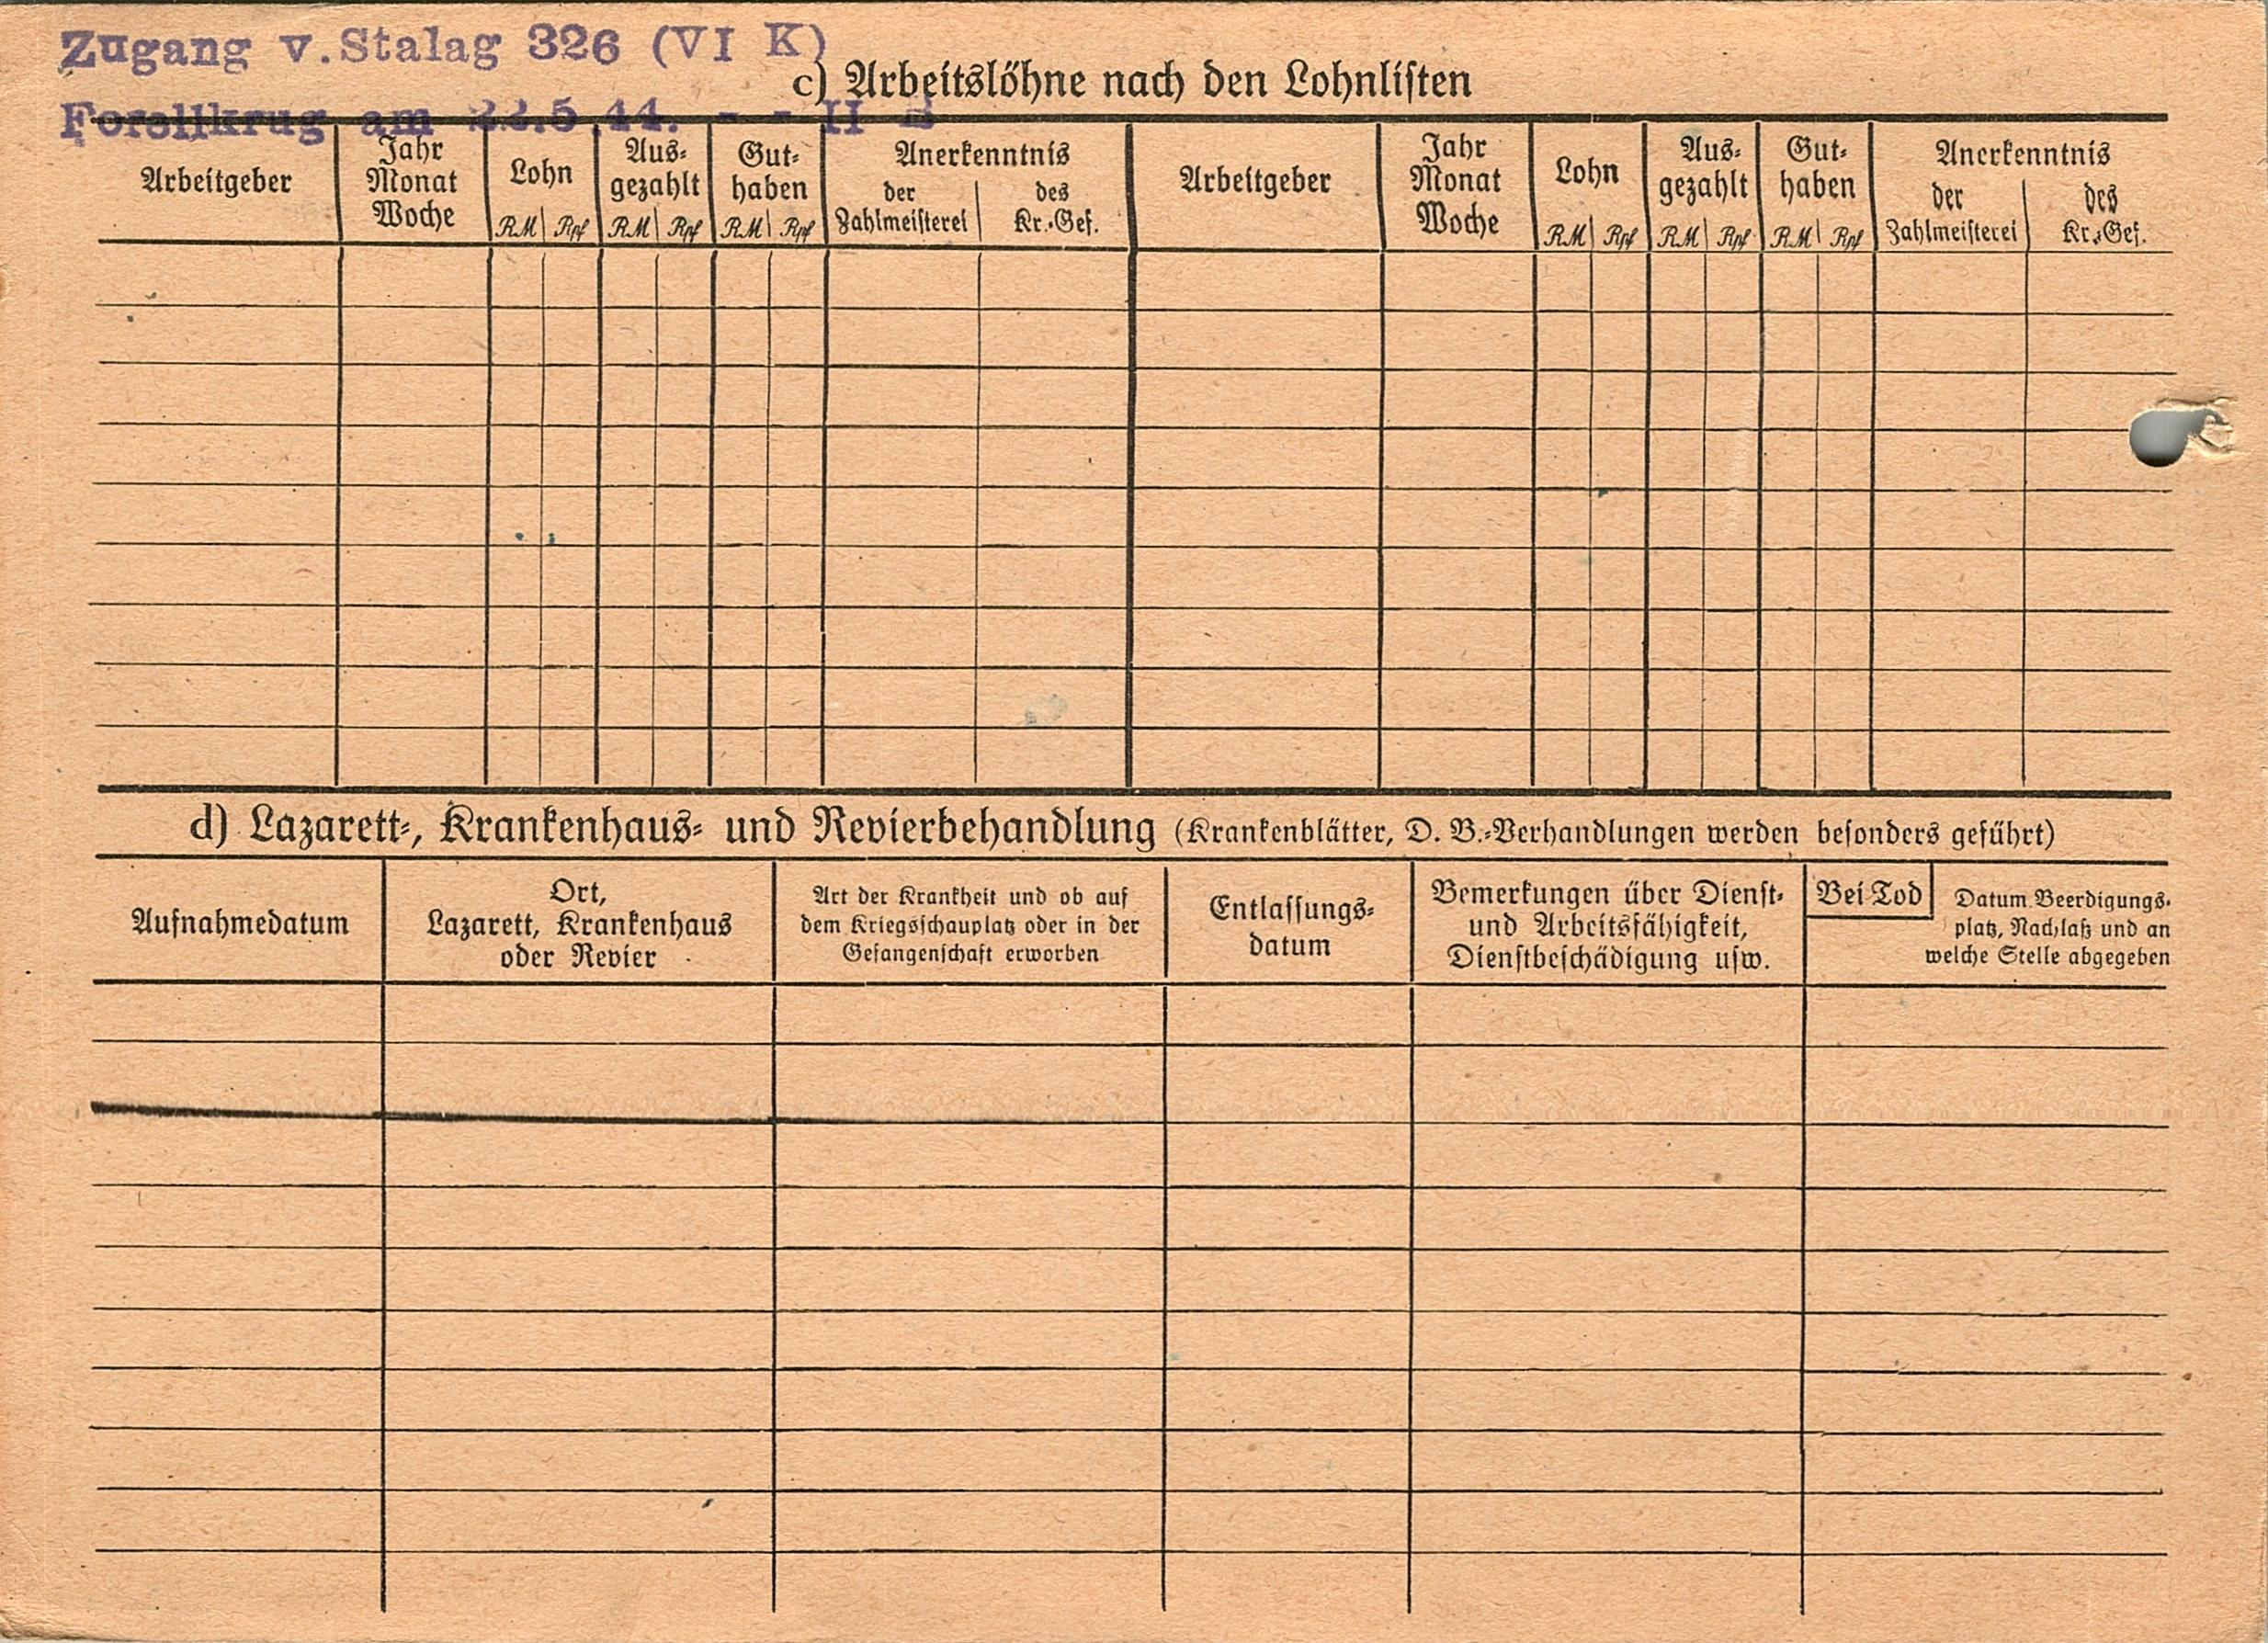 Zugang v. Stalag 326 (VI K)
c) Arbeitslöhne nach den Lohnlisten
Forellkrug am 22.5.44. - - II B
Arbeitgeber
Jahr
Monat
Woche
Lohn
RM Rpf
Aus-
gezahlt
RM Rpf
Gut-
haben
RM Rpf
Anerkenntnis
der
Zahlmeisterei
des
Kr.-Gef.
Arbeitgeber
Jahr
Monat
Woche
Lohn
RM Rpf
Aus-
gezahlt
RM Rpf
Gut-
haben
RM Rpf
Anerkenntnis
der
Zahlmeisterei
des
Kr.-Gef.
d) Lazarett-, Krankenhaus- und Revierbehandlung (Krankenblätter, D. B.-Verhandlungen werden besonders geführt)
Aufnahmedatum
Ort,
Lazarett, Krankenhaus
oder Revier
Art der Krankheit und ob auf
dem Kriegsschauplatz oder in der
Gefangenschaft erworben
Entlassungs-
datum
Bemerkungen über Dienst-
und Arbeitsfähigkeit,
Dienstbeschädigung usw.
Bei Tod
Datum, Beerdigungs-
platz, Nachlaß und an
welche Stelle abgegeben